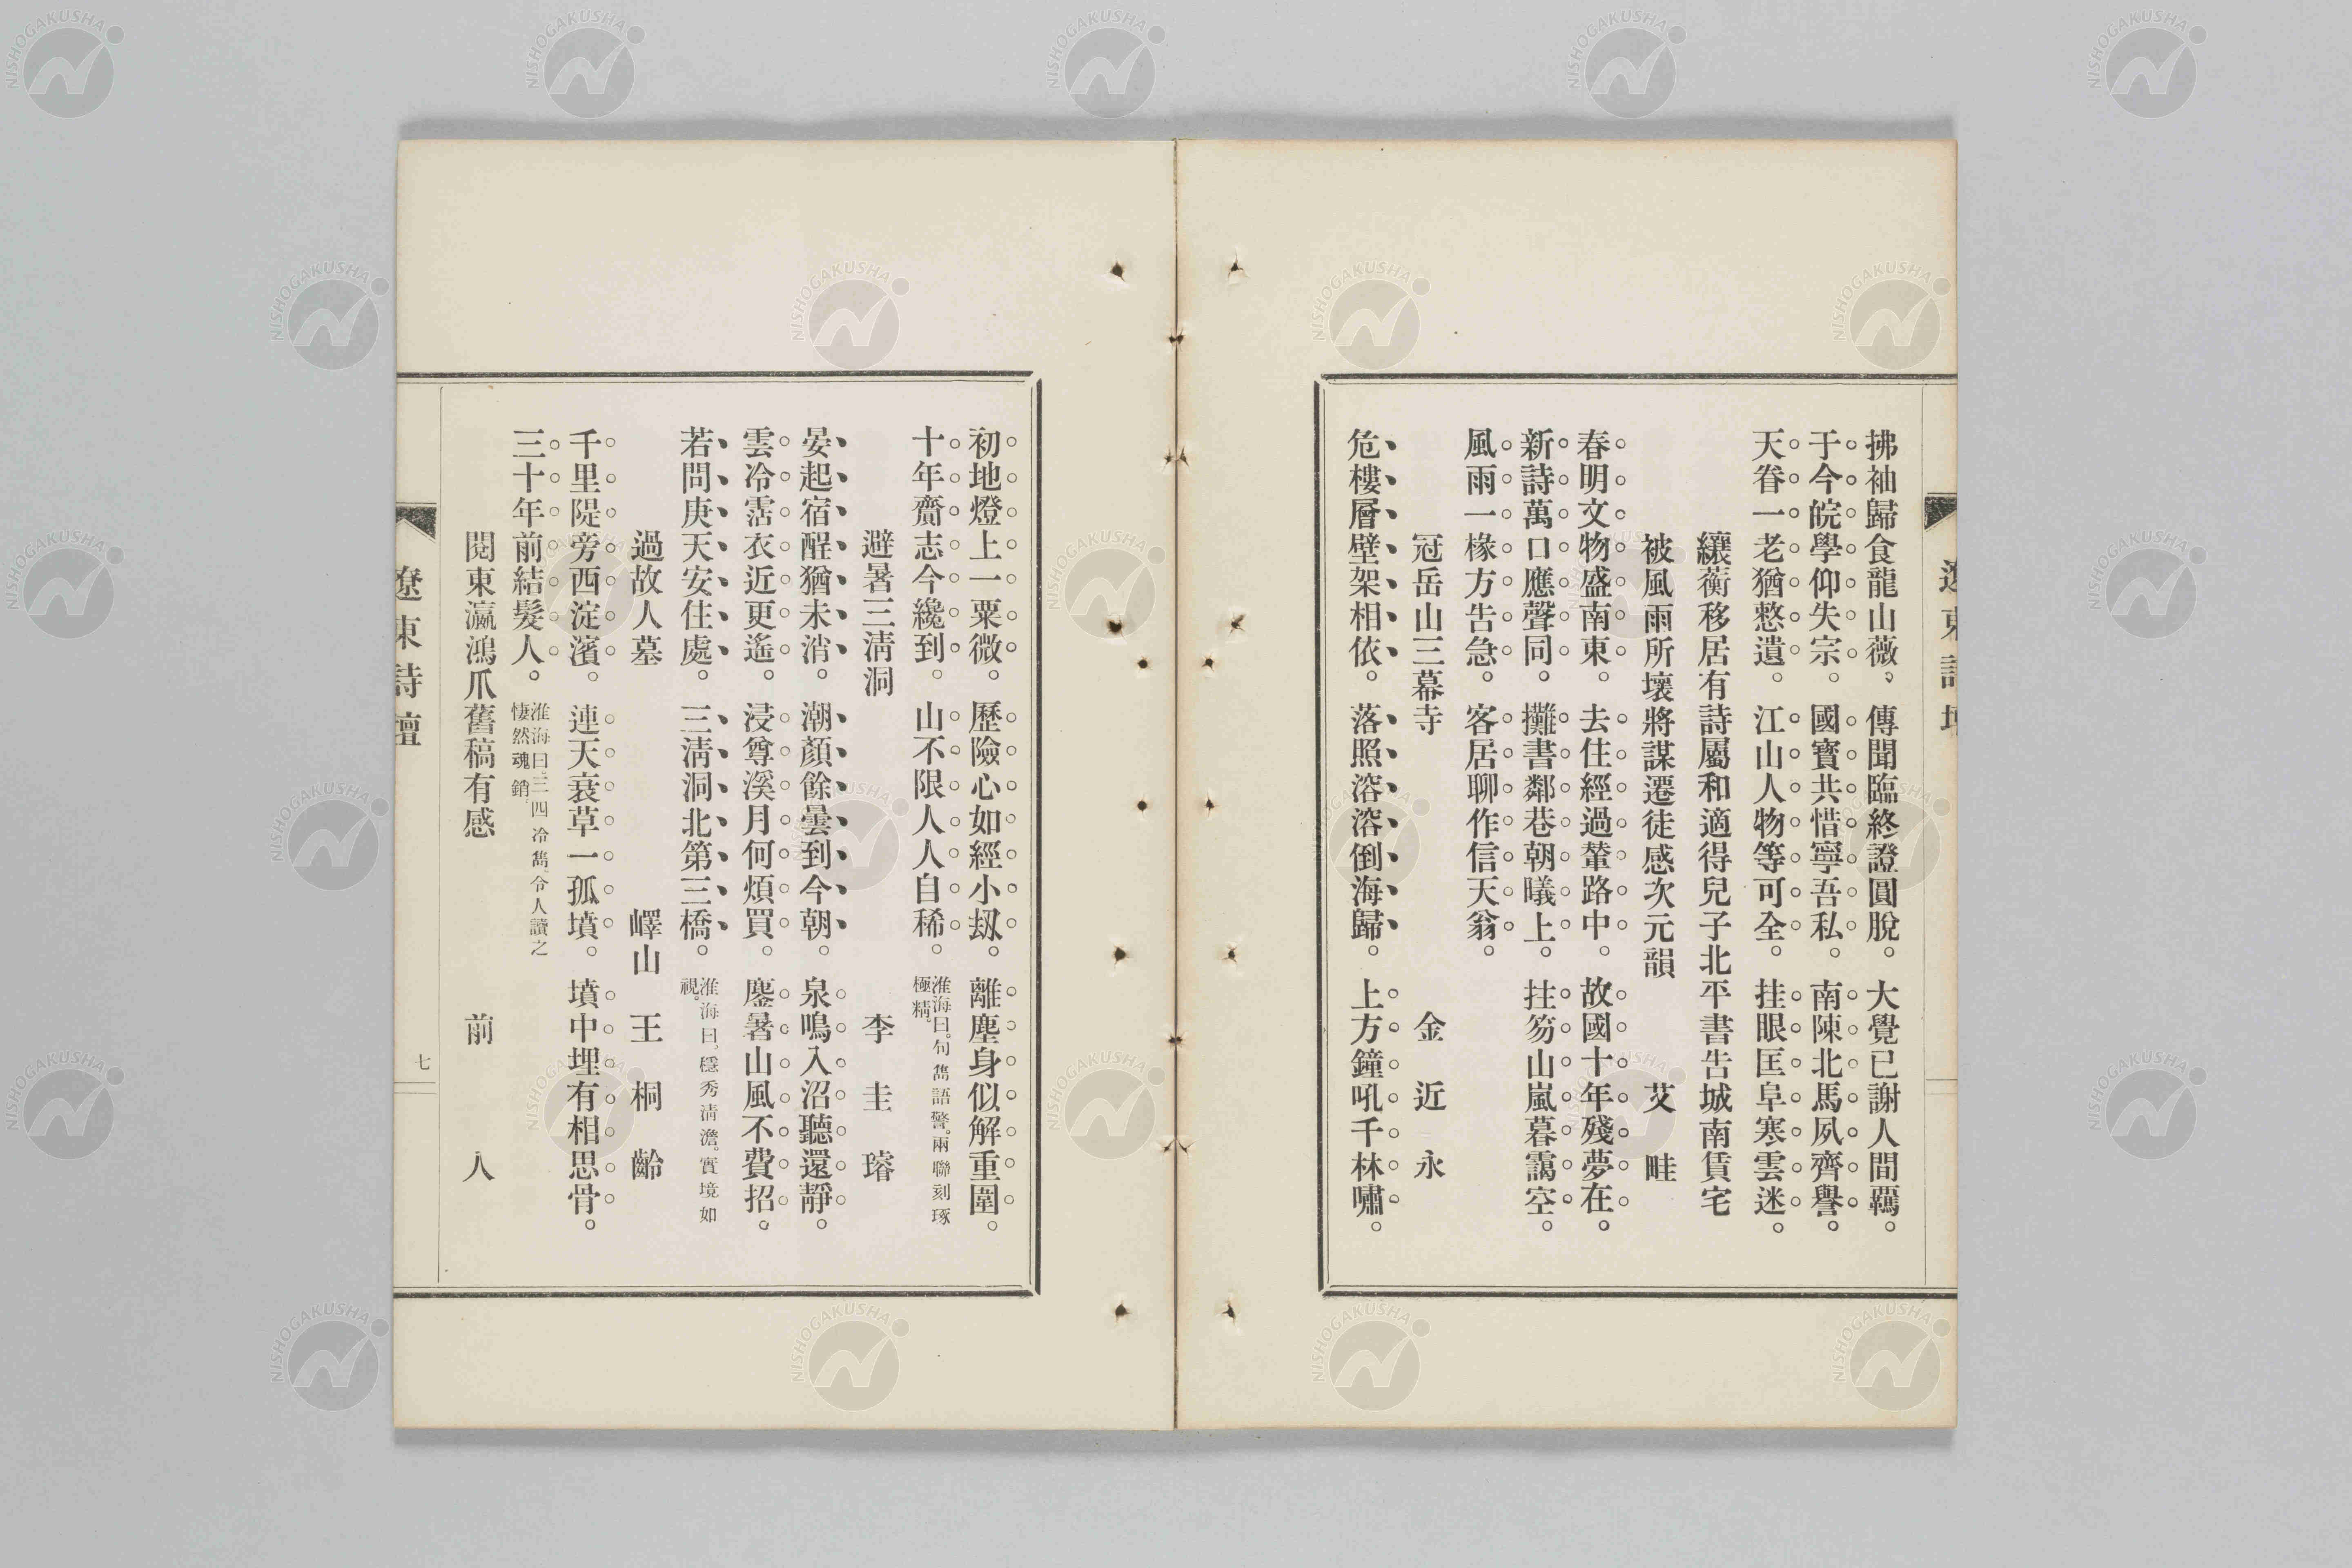 遼東詩壇
拂袖歸食龍山薇、傳聞臨終證圓脫。大覺已謝人間羈。
于今皖學仰失宗。國寳共惜寧吾私。南陳北馬夙齊譽。
天眷一老猶憖遺。江山人物等可全。挂眼匡阜寒雲迷。
纕蘅移居有詩屬和適得兒子北平書告城南賃宅
被風雨所壞將謀遷徒感次元韻　艾畦
春明文物盛南東。去住經過輦路中。故國十年殘夢在。
新詩萬口應聲同。攤書鄰巷朝曦上。拄笏山嵐暮靄空。
風雨一椽方告急。客居聊作信天翁。
冠岳山三幕寺　金近永
危樓層壁架相依。落照溶溶倒海歸。上方鐘吼千林嘯。
初地燈上一粟微。歷險心如經小刼。離塵身似解重圍。
十年齎志今纔到。山不限人人自稀。淮海曰。句雋語警。兩聯刻琢
極精。
避暑三淸洞　李圭瑢
晏起宿酲猶未消。潮顏餘暈到今朝。泉鳴入沼聽還靜。
雲冷霑衣近更遙。浸尊溪月何煩買。鏖暑山風不費招。
若問庚天安住處。三淸洞北第三橋。淮海曰。穩秀淸澹。實境如
視。
過故人墓　嶧山王桐齡
千里隄旁西淀濱。連天衰草一孤墳。墳中埋有相思骨。
三十年前結髮人。淮海曰。三四冷雋。令人讀之
悽然魂銷。
閱東瀛鴻爪舊稿有感　前人
遼東詩壇
七
NISHOGAKUSHA